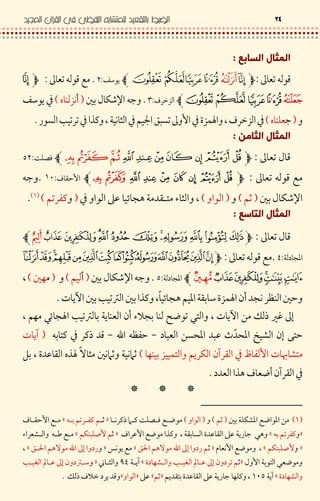 ٢٤ الضبط بالتقعيد للمتشابه اللفظي في القرآن المجيد
المثال السابع :
قوله تعالى : ﴿ إِنَّا أَنزَلْنَاهُ قُرْآنًا عَرَبِيًّا لَّعَلَّكُمْ تَعْقِلُونَ ﴾ يوسف:٢ . مع قوله تعالى : ﴿ إِنَّا
جَعَلْنَاهُ قُرْآنًا عَرَبِيًّا لَّعَلَّكُمْ تَعْقِلُونَ ﴾ الزخرف:٣ . وجه الإشكال بين ( أنزلناه ) في يوسف
و ( جعلناه ) في الزخرف ، والهمزة في الأولى تسبق الجيم في الثانية ، وكذا في ترتيب السور .
المثال الثامن :
قال تعالى : ﴿ قُلْ أَرَءَيْتُمْ إِن كَانَ مِنْ عِندِ اللَّهِ ثُمَّ كَفَرْتُم بِهِ ﴾ فصلت:٥٢
مع قوله تعالى : ﴿ قُلْ أَرَءَيْتُمْ إِن كَانَ مِنْ عِندِ اللَّهِ وَكَفَرْتُم بِهِ ﴾ الأحقاف:١٠ .وجه
الإشكال بين ( ثم ) و ( الواو ) ، والثاء متقدمة هجائيا على الواو في ( وكفرتم )(١).
المثال التاسع :
قال تعالى : ﴿ ذَلِكَ لِتُؤْمِنُوا بِاللَّهِ وَرَسُولِهِ وَتِلْكَ حُدُودُ اللَّهِ وَلِلْكَافِرِينَ عَذَابٌ أَلِيمٌ ﴾
المجادلة:٤ .مع قوله تعالى : ﴿ إِنَّ الَّذِينَ يُحَادُّونَ اللَّهَ وَرَسُولَهُ كُبِتُوا كَمَا كُبِتَ الَّذِينَ مِن قَبْلِهِمْ وَقَدْ أَنزَلْنَا
آيَاتٍ بَيِّنَاتٍ وَلِلْكَافِرِينَ عَذَابٌ مُّهِينٌ ﴾ المجادلة:٥ . وجه الإشكال بين ( أليم ) و ( مهين ) ،
وحين النظر نجد أن الهمزة سابقة الميم هجائياً، وكذا بين الترتيب بين الآيات .
إلى غير ذلك من الآيات ، والتي توضح لنا بجلاء أن العناية بالترتيب الهجائي مهم ،
حتى إن الشيخ المحدّث عبد المحسن العباد - حفظه الله - قد ذكر في كتابه ( آيات
متشابهات الألفاظ في القرآن الكريم والتمييز بينها ) ثمانية وثمانين مثالاً لهذه القاعدة ، بل
في القرآن أضعاف هذا العدد .
* * *
(١) من المواضع المشكلة بين ( ثم ) و ( الواو ) موضع فصلت كما ذكرنا « ثم كفرتم به » مع الأحقاف
«وكفرتم به » وهي جارية على القاعدة السابقة ، وكذا موضع الأعراف « ثم لأصلبنكم » مع طه والشعراء
« ولأصلبنكم » ، وموضع الأنعام « ثم ردوا إلى الله مولاهم الحق » مع يونس « وردوا إلى الله مولاهم الحق » ،
وموضعي التوبة الأول «ثم تردون إلى عالم الغيب والشهادة» آية ٩٤ والثاني «وستردون إلى عالم الغيب
والشهادة » آية ١٠٥ ، وكلها جارية على القاعدة بتقديم «ثم» على «الواو» وقد يرد خلاف ذلك .